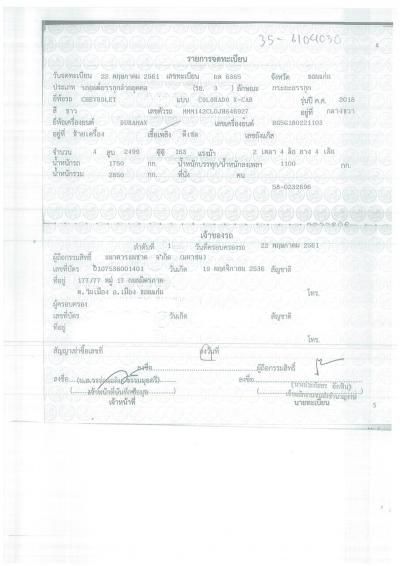 35-4104030
4
รายการจดทะเบียน
วันจดทะเบียน 22 พฤษภาคม 2561 เลขทะเบียน 6365 จังหวัด ขอนแก่น
ประเภท รถยนต์บรรทุกส่วนบุคคล (รย. 3 ) ลักษณะ กระบะบรรทุก
ยี่ห้อรถ CHEVROLET แบบ COLORADO X-CAB รุ่นปี ค.ศ. 2018
สี ขาว เลขตัวรถ MMM142CLOJH646927 อยู่ที่ กลางขวา
ยี่ห้อเครื่องยนต์ DURAMAX เลขเครื่องยนต์ BG5G180221103
อยู่ที่ ซ้ายเครื่อง เชื้อเพลิง ดีเซล เลขถังแก๊ส
จำนวน 4 สูบ 2499 ซีซี 163 แรงม้า 2 เพลา 4 ล้อ ยาง 4 เส้น
น้ำหนักรถ 1750 กก. น้ำหนักบรรทุก/น้ำหนักลงเพลา 1100 กก.
น้ำหนักรวม 2850 กก. ที่นั่ง คน
58-0232696
เจ้าของรถ
ลำดับที่ 1 วันที่ครอบครองรถ 22 พฤษภาคม 2561
ผู้ถือกรรมสิทธิ์ ธนาคารธนชาต จำกัด (มหาชน)
เลขที่บัตร 0107536001401 วันเกิด 19 พฤศจิกายน 2536 สัญชาติ
ที่อยู่ 177/77 หมู่ 17 ถนนมิตรภาพ
ต.ในเมือง อ.เมือง ขอนแก่น โทร.
ผู้ครอบครอง
เลขที่บัตร วันเกิด สัญชาติ
ที่อยู่
โทร.
สัญญาเช่าซื้อเลขที่ ลงวันที่
ลงชื่อ ผู้ถือกรรมสิทธิ์
ลงชื่อ ลงชื่อ
เจ้าหน้าที่ นายทะเบียน
5